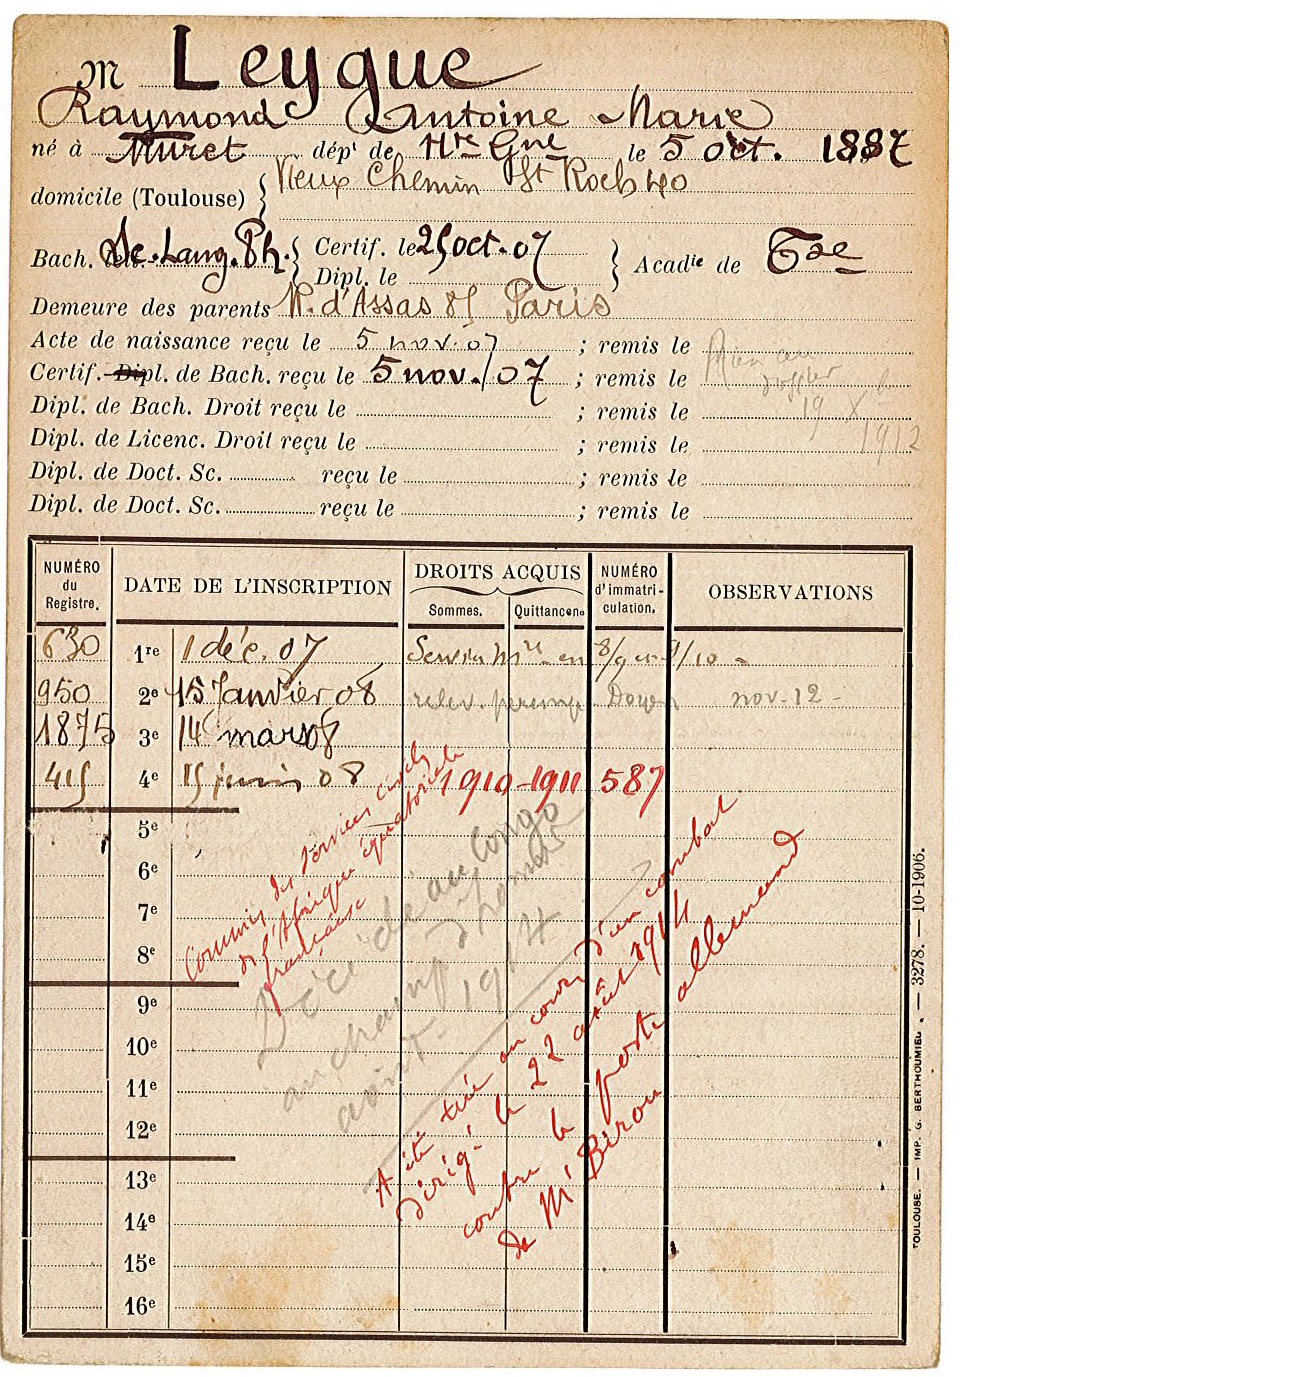 M Leygue
Raymond Antoine Marie
né à Muret dépt de Hte Gne le 5 oct. 1887
domicile (Toulouse) { Vieux Chemin St Roch 40
Bach. Sc. Lang. Ph. { Certif. le 25 oct. 07 } Acadie de Tse
Dipl. le
Demeure des parents R. d'Assas 85 Paris
Acte de naissance reçu le 5 nov. 07 ; remis le Rien au
Certif. Dipl. de Bach. reçu le 5 nov./07 ; remis le dossier
Dipl. de Bach. Droit reçu le ; remis le 19 Xbre
Dipl. de Licenc. Droit reçu le ; remis le 1912
Dipl. de Doct. Sc. reçu le ; remis le
Dipl. de Doct. Sc. reçu le ; remis le
NUMÉRO du Registre. DATE DE L'INSCRIPTION DROITS ACQUIS NUMÉRO d'immatriculation. OBSERVATIONS
Sommes. Quittancen°
630 1re 1 déc. 07 Service Mre en 8/9 et 9/10
950 2e 15 Janvier 08 relev. péremp Doyen nov. 12 -
1875 3e 14 mars 08
415 4e 15 juin 08 1910-1911 587
5e
6e
7e
8e
9e
10e
11e
12e
13e
14e
15e
16e
Commis des Services civils
de l'Afrique équatoriale
française
Décédé au Congo
au champ d'honneur
août 1914
A été tué au cours d'un combat
dirigé le 22 août 1914
contre le poste allemand
de M'Birou
TOULOUSE. — IMP. G. BERTHOUMIEU. — 3278. — 10-1906.